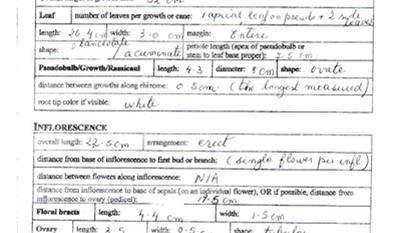 Leaf number of leaves per growth or cane: 1 apical leaf on pseudo + 2 side leaves
length: 26.4cm width: 3.0 cm margin: Entire
shape: / acuminate petiole length (apex of pseudobulb or stem to leaf base proper): 2.5cm
Pseudobulb/Growth/Ramicaul length: 4.3 diameter: cm shape: ovate
distance between growths along rhizome: 0.5cm (the longest measured)
root tip color if visible: white
INFLORESCENCE
overall length: 22.5cm arrangement: erect
distance from base of inflorescence to first bud or branch: (single flower per infl)
distance between flowers along inflorescence: N/A
distance from inflorescence to base of sepals (on an individual flower), OR if possible, distance from
inflorescence to ovary (pedicel): 17.5cm
Floral bracts length: 4.4 cm width: 1.5cm
Ovary length: 2.5 width: 0.5cm shape: